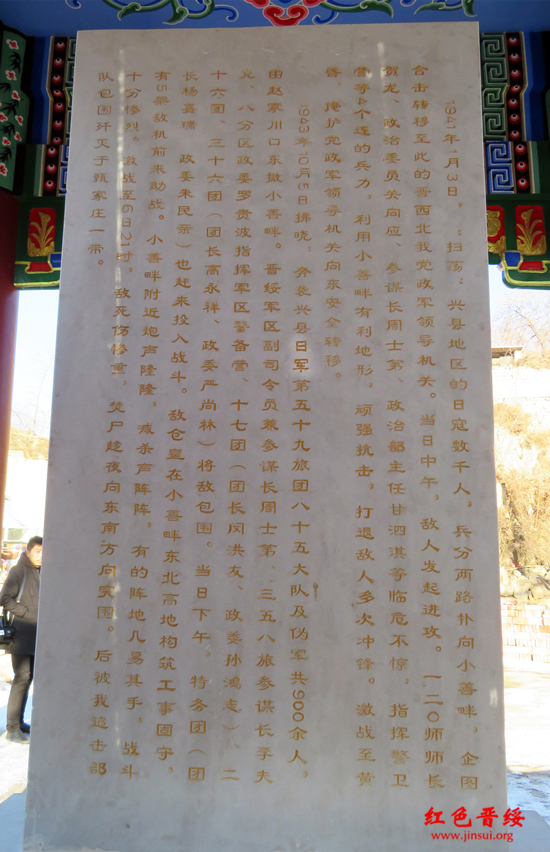 1941年1月3日，"扫荡"兴县地区的日寇数千人，兵分两路扑向小善畔，企图
合击转移至此的晋西北我党政军领导机关。当日中午，敌人发起进攻。一二〇师师长
贺龙、政治委员关向应、参谋长周士第、政治部主任甘泗淇等临危不惊，指挥警卫
营等4个连的兵力，利用小善畔有利地形，顽强抗击，打退敌人多次冲锋。激战至黄
昏，掩护党政军领导机关向东安全转移。
1943年10月5日拂晓，奔袭兴县日军第五十九旅团八十五大队及伪军共900余人，
由赵家川口东撤小善畔。晋绥军区副司令员兼参谋长周士第、三五八旅参谋长李夫
克、八分区政委罗贵波指挥军区警备营、十七团（团长闵洪友、政委孙鸿志）、二
十六团、三十六团（团长高永祥、政委严尚林）将敌包围。当日下午，特务团（团
长杨嘉瑞、政委朱民亲）也赶来投入战斗。敌仓皇在小善畔东北高地构筑工事固守，
有5架敌机前来助战。小善畔附近炮声隆隆，喊杀声阵阵，有的阵地几易其手，战斗
十分惨烈。激战至6日21时，敌死伤惨重，焚尸趁夜向东南方向突围。后被我追击部
队包围歼灭于甄家庄一带。
红色晋绥
www.jinsui.org